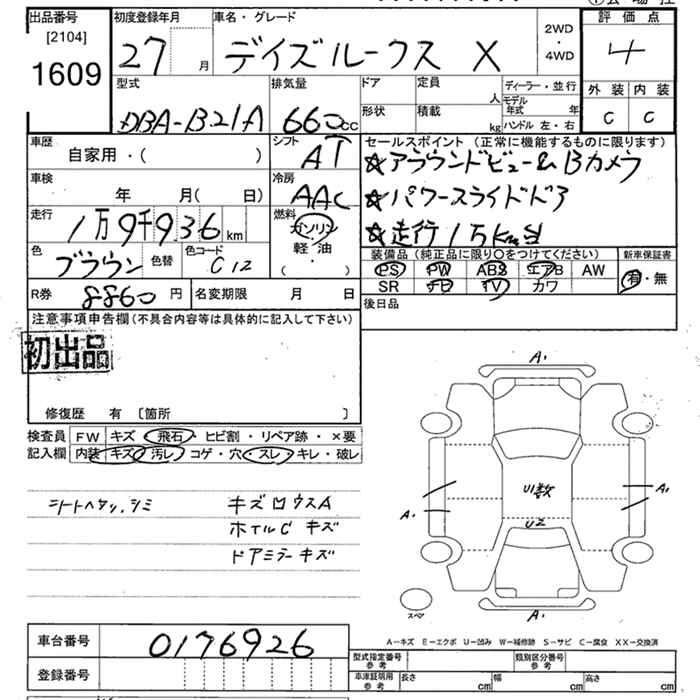 出品番号 初度登録年月 車名・グレード 評価点
[2104]
1609
27 月 デイズルークス X 2WD・4WD 4
外装 内装
C C
型式 排気量 ドア 定員 人 ディーラー・並行
DBA-B21A 660cc 形状 積載 kg モデル年式 年
ハンドル 左・右
車歴 シフト セールスポイント (正常に機能するものに限ります)
自家用・( ) AT ☆アラウンドビュー& Bカメラ
車検 冷房
年 月( 日) AAC ☆パワースライドドア
走行 燃料
1万9千936 km ガソリン ☆走行1万Km台
軽・油
( )
色 色替 色コード
ブラウン C12
装備品 (純正品に限り○をつけてください) 新車保証書
PS PW ABS エアB AW 有・無
SR カワ TV
R券 8860円 名変期限 月 日 後日品
注意事項申告欄(不具合内容等は具体的に記入して下さい)
初出品
修復歴 有 〔箇所 〕
検査員 FW キズ・飛石・ヒビ割・リペア跡・×要
記入欄 内装 キズ・汚レ・コゲ・穴・スレ・キレ・破レ
シートヘタリ,シミ キズロウスA
ホイルC キズ
ドアミラーキズ
A¹
U1数
U2
A¹ A¹
スペア A¹
A-キズ E-エクボ U-凹み W-補修跡 S-サビ C-腐食 XX-交換済
車台番号 0176926
登録番号
型式指定番号 参考 類別区分番号 参考
車庫証明用 参考 長さ cm 幅 cm 高さ cm